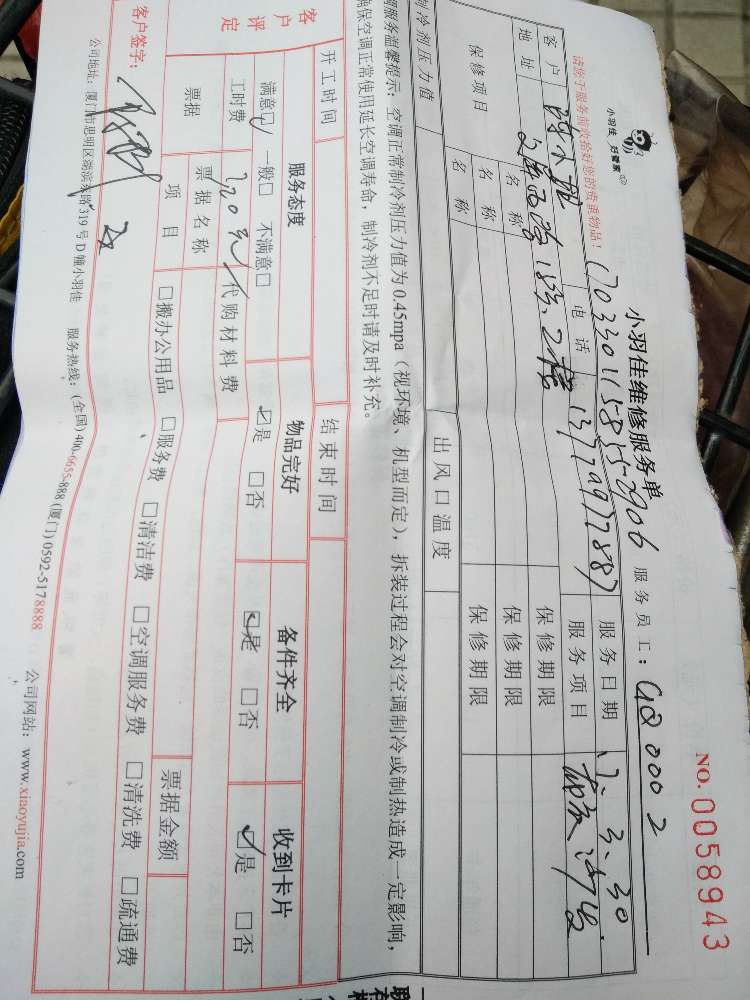 NO. 0058943
小羽佳 好管家
小羽佳维修服务单 服务员工: GQ0002
请您于服务前收拾好您的贵重物品! 170330115855-2906
客户 陈小姐 电话 服务日期 17.3.30
地址 2栋 服务项目
保修项目 名称 保修期限
名称 保修期限
名称 保修期限
制冷剂压力值 出风口温度
调服务温馨提示:空调正常制冷剂压力值为0.45mpa(视环境、机型而定),拆装过程会对空调制冷或制热造成一定影响,
确保空调正常使用延长空调寿命,制冷剂不足时请及时补充。
开工时间 结束时间
客户评定 服务态度 物品完好 备件齐全 收到卡片
满意☑ 一般□ 不满意□ ☑是 □否 ☑是 □否 ☑是 □否
工时费 220元 代购材料费
票据 票据名称 票据金额
项目 □搬办公用品 □服务费 □清洁费 □空调服务费 □清洗费 □疏通费
客户签字:
公司地址:厦门市思明区湖滨东路319号D幢小羽佳 服务热线:(全国)400-6655-888 (厦门)0592-5178888 公司网站:www.xiaoyujia.com